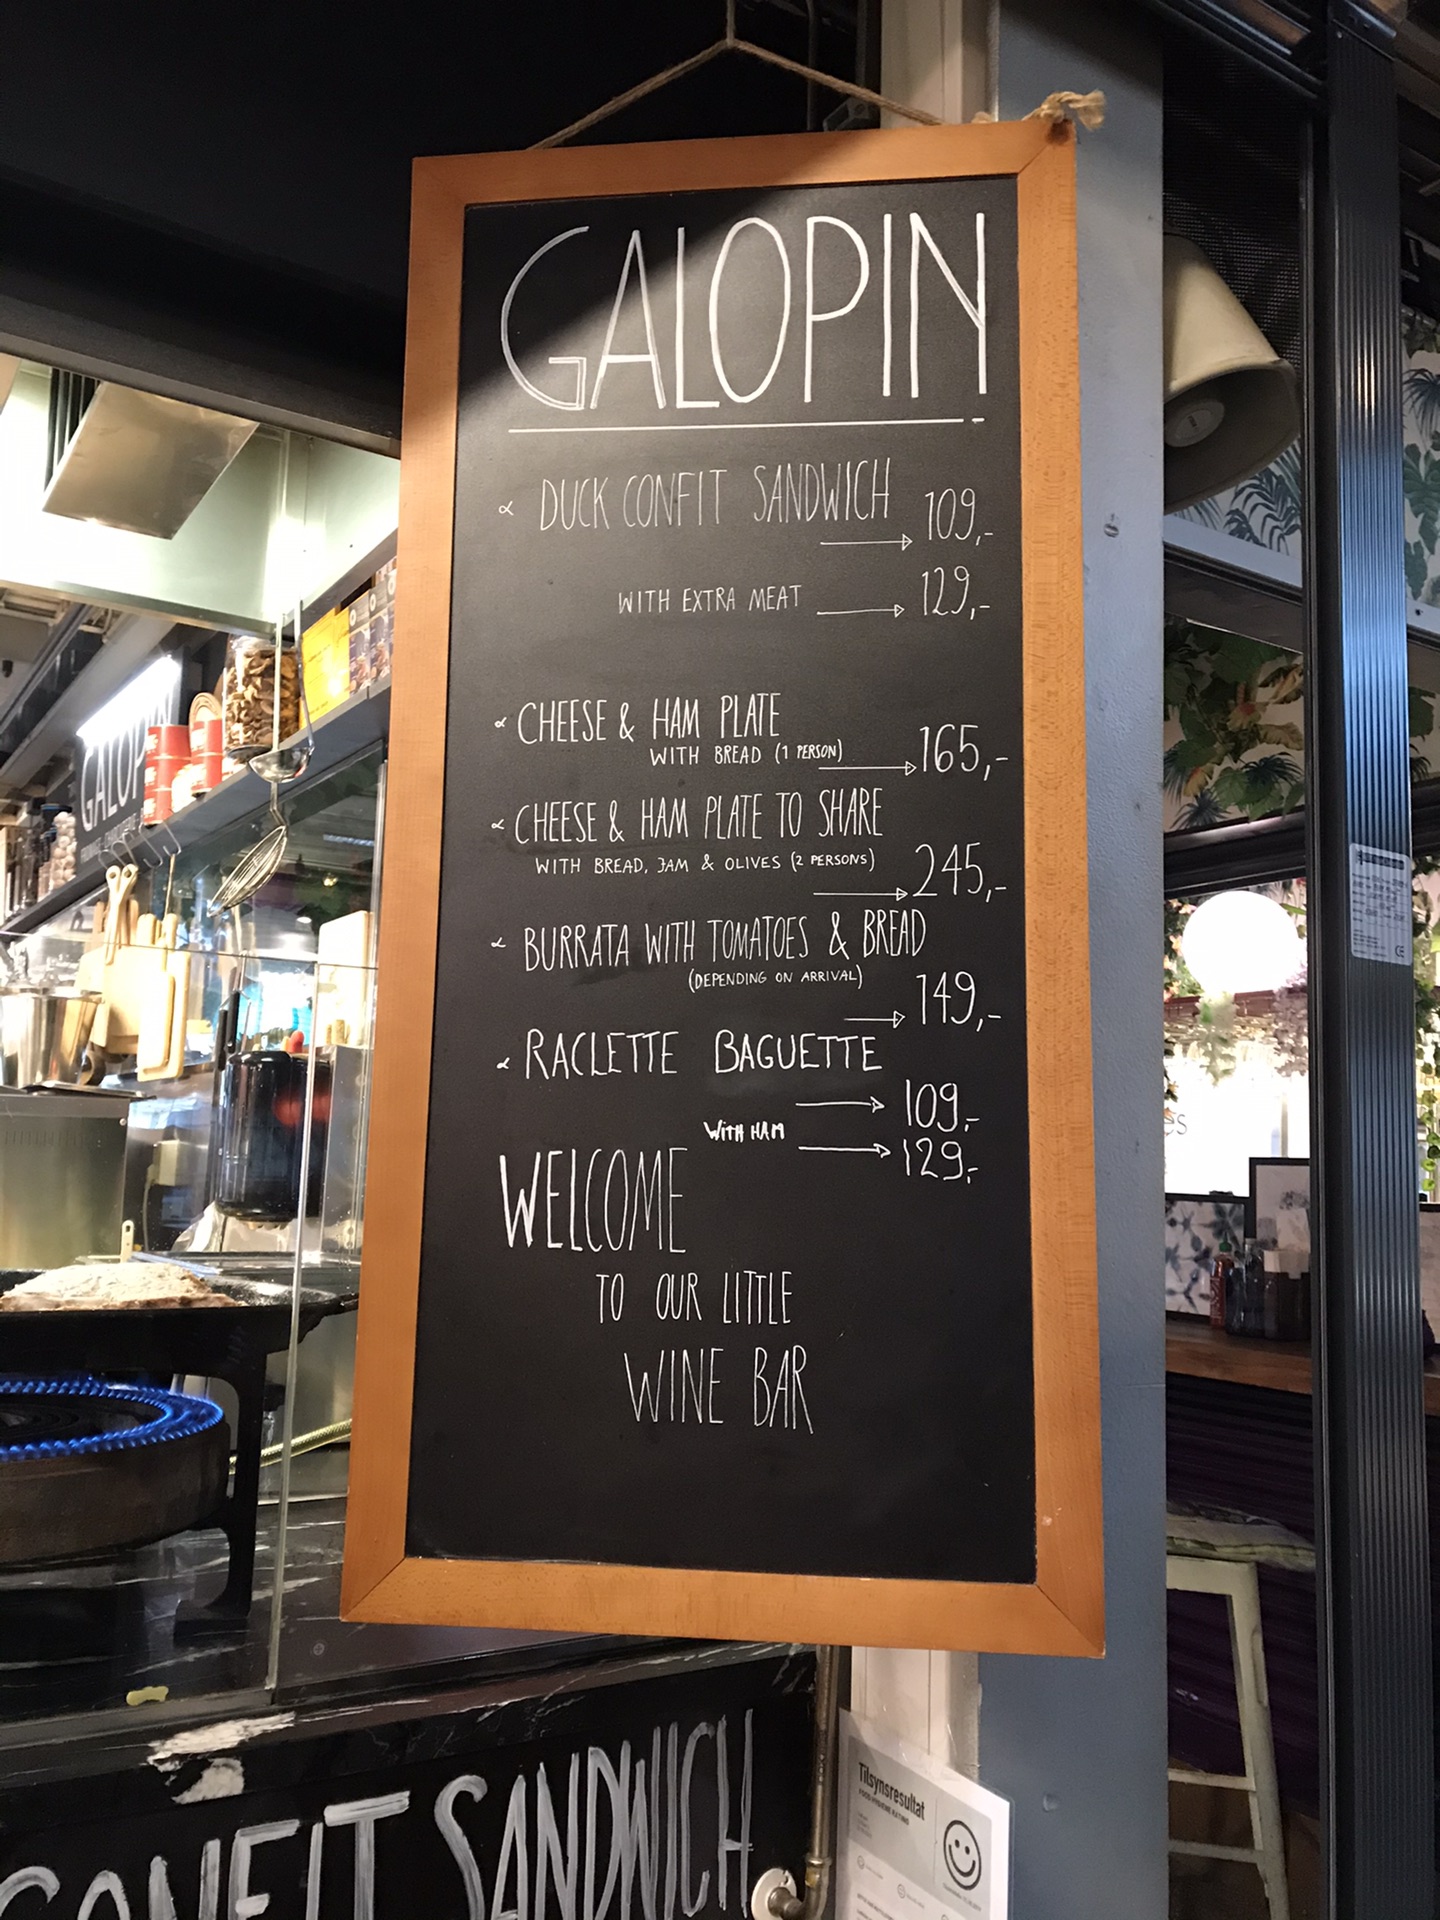 GALOPIN
DUCK CONFIT SANDWICH
109,-
WITH EXTRA MEAT
129,-
CHEESE & HAM PLATE
WITH BREAD (1 PERSON)
165,-
CHEESE & HAM PLATE TO SHARE
WITH BREAD, JAM & OLIVES (2 PERSONS)
245,-
BURRATA WITH TOMATOES & BREAD
(DEPENDING ON ARRIVAL)
149,-
RACLETTE BAGUETTE
109,-
WITH HAM
129,-
WELCOME
TO OUR LITTLE
WINE BAR
GALOPIN
CONFIT SANDWICH
Tilsynsresultat
FOOD HYGIENE RATING
CE